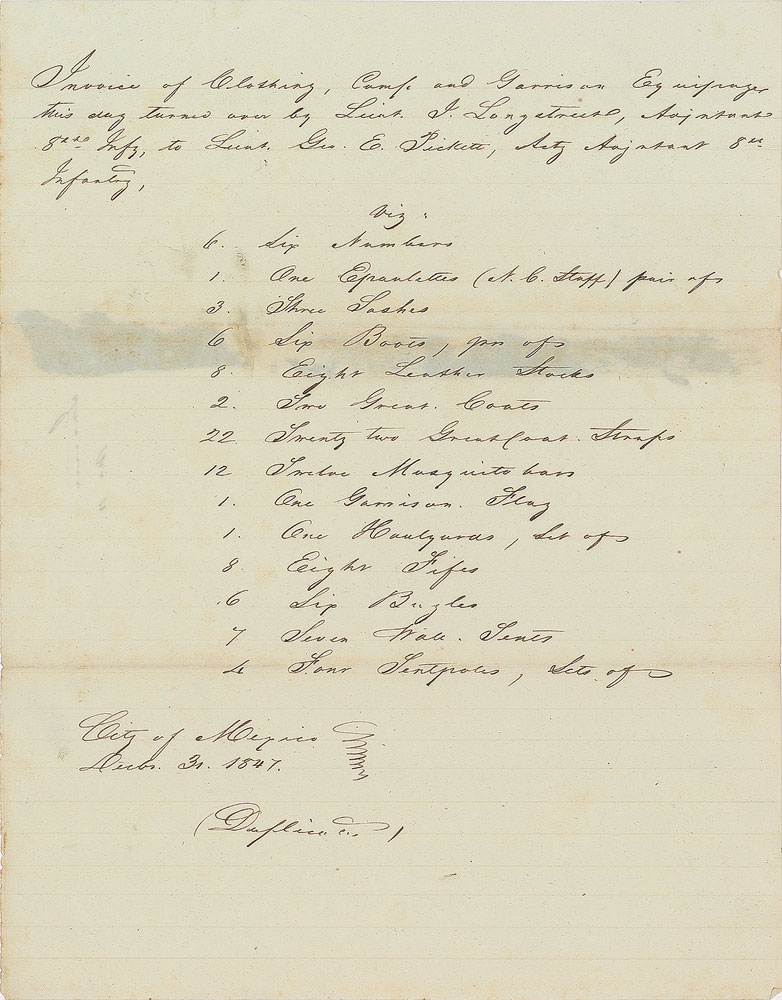 Invoice of Clothing, Camp and Garrison Equipage
this day turned over by Lieut. J. Longstreet, Adjutant
8th Infy, to Lieut. Geo. E. Pickett, Actg Adjutant 8th
Infantry,
Viz:
6. Six Numbers
1. One Epaulettes (N. C. Staff) pair of
3. Three Sashes
6 Six Boots, prs of
8. Eight Leather Stocks
2. Two Great Coats
22 Twenty two Great Coat Straps
12 Twelve Mosquito bars
1. One Garrison Flag
1. One Haulyards, Set of
8 Eight Fifes
6 Six Bugles
7 Seven Wall Tents
4 Four Tentpoles, Sets of
City of Mexico
Decbr. 31. 1847.
(Duplicate)